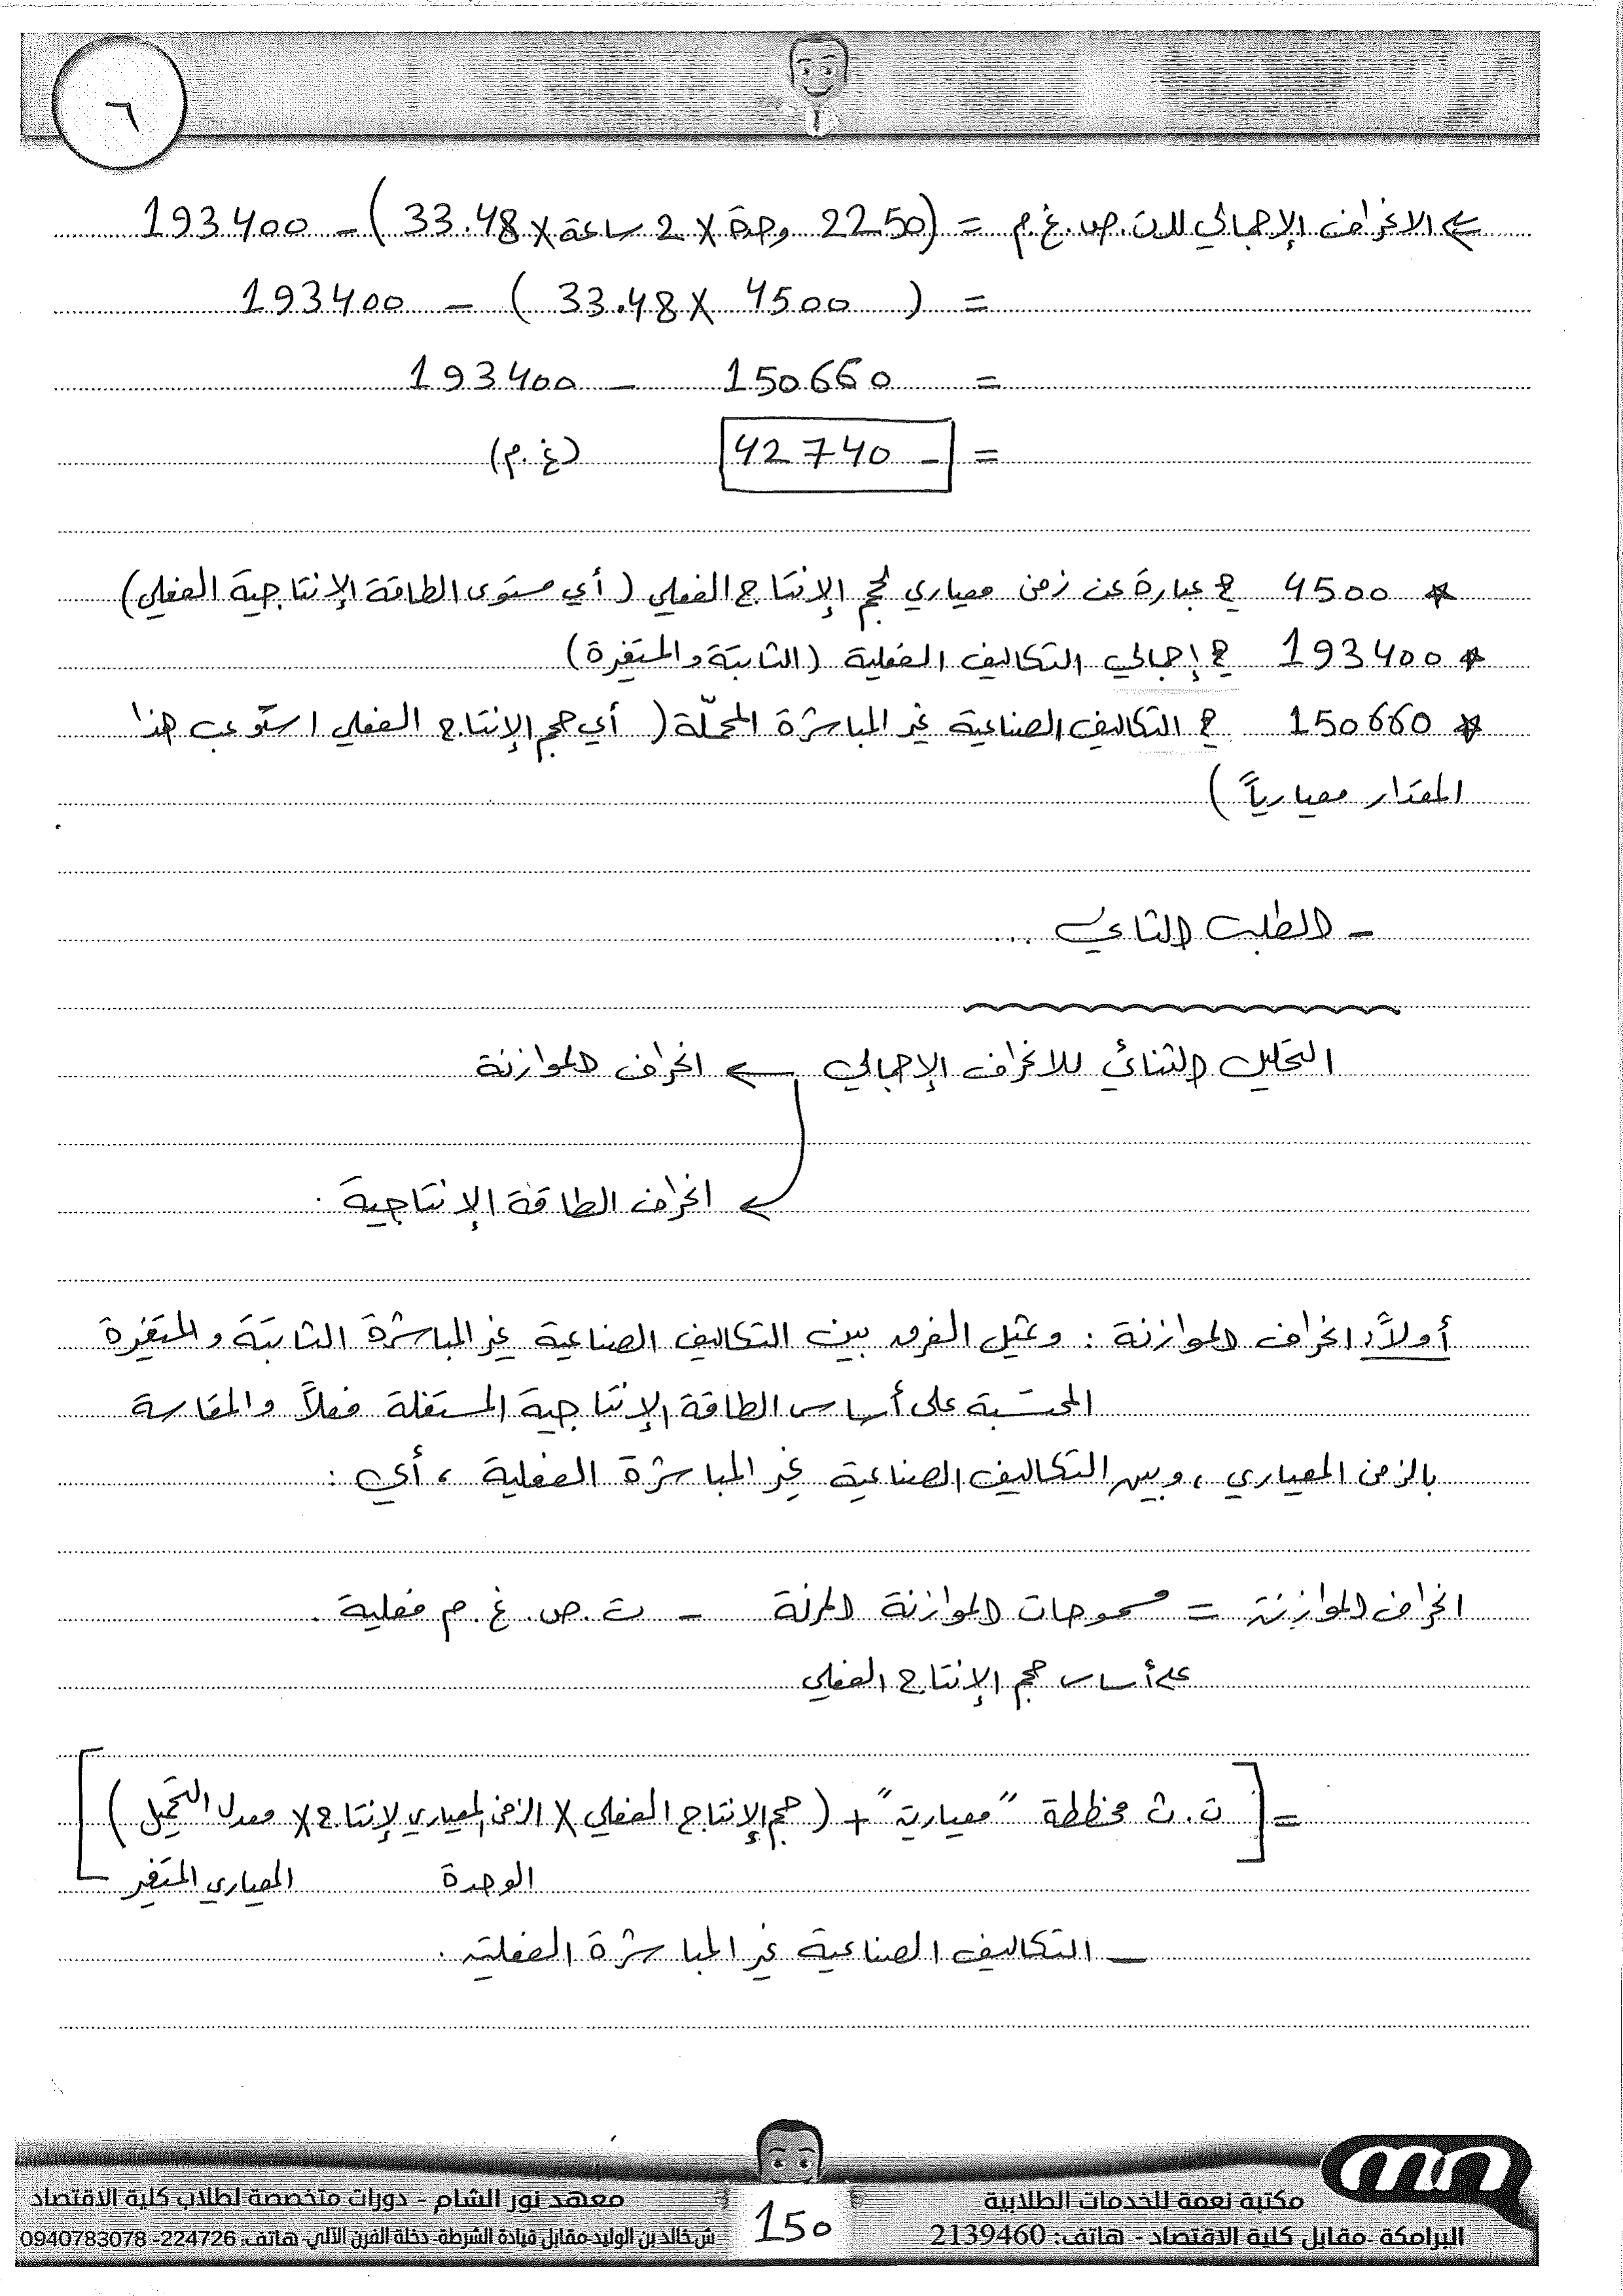 ٦
← الانحراف الإجمالي للت.ص.غ.م = (2250 وحدة × 2 ساعة × 33.48) - 193400
= ( 4500 × 33.48 ) - 193400
= 150660 - 193400
= - 42740 (غ.م)
* 4500 ⇐ عبارة عن زمن معياري لحجم الإنتاج الفعلي (أي مستوى الطاقة الإنتاجية الفعلي)
* 193400 ⇐ إجمالي التكاليف الفعلية (الثابتة والمتغيرة)
* 150660 ⇐ التكاليف الصناعية غير المباشرة المحمّلة (أي حجم الإنتاج الفعلي استوعب هذا
المقدار معيارياً)
- الطلب الثاني ...
التحليل الثنائي للانحراف الإجمالي ← انحراف الموازنة
← انحراف الطاقة الإنتاجية.
أولاً: انحراف الموازنة: ويمثل الفرق بين التكاليف الصناعية غير المباشرة الثابتة والمتغيرة
المحتسبة على أساس الطاقة الإنتاجية المستغلة فعلاً والمقاسة
بالزمن المعياري، وبين التكاليف الصناعية غير المباشرة الفعلية، أي:
انحراف الموازنة = مسموحات الموازنة المرنة - ت.ص.غ.م فعلية.
على أساس حجم الإنتاج الفعلي
= [ت.ث مخططة "معيارية" + (حجم الإنتاج الفعلي × الزمن المعياري لإنتاج × معدل التحميل)
الوحدة المعياري المتغير]
- التكاليف الصناعية غير المباشرة الفعلية.
مكتبة نعمة للخدمات الطلابية
البرامكة -مقابل كلية الاقتصاد - هاتف: 2139460
150
معهد نور الشام - دورات متخصصة لطلاب كلية الاقتصاد
ش.خالد بن الوليد-مقابل قيادة الشرطة- دخلة الفرن الآلي- هاتف: 224726- 0940783078